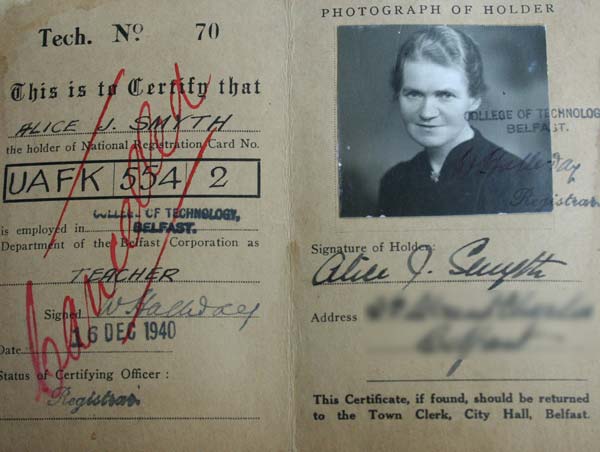 Tech. No. 70
This is to Certify that
ALICE J. SMYTH
the holder of National Registration Card No.
UAFK 554 2
COLLEGE OF TECHNOLOGY,
is employed in BELFAST.
Department of the Belfast Corporation as
TEACHER
Signed W Halliday
16 DEC 1940
Date
Status of Certifying Officer :
Registrar
Cancelled
PHOTOGRAPH OF HOLDER
COLLEGE OF TECHNOLOGY
BELFAST.
W Halliday
Registrar.
Signature of Holder:
Alice J. Smyth
Address
Belfast
This Certificate, if found, should be returned
to the Town Clerk, City Hall, Belfast.